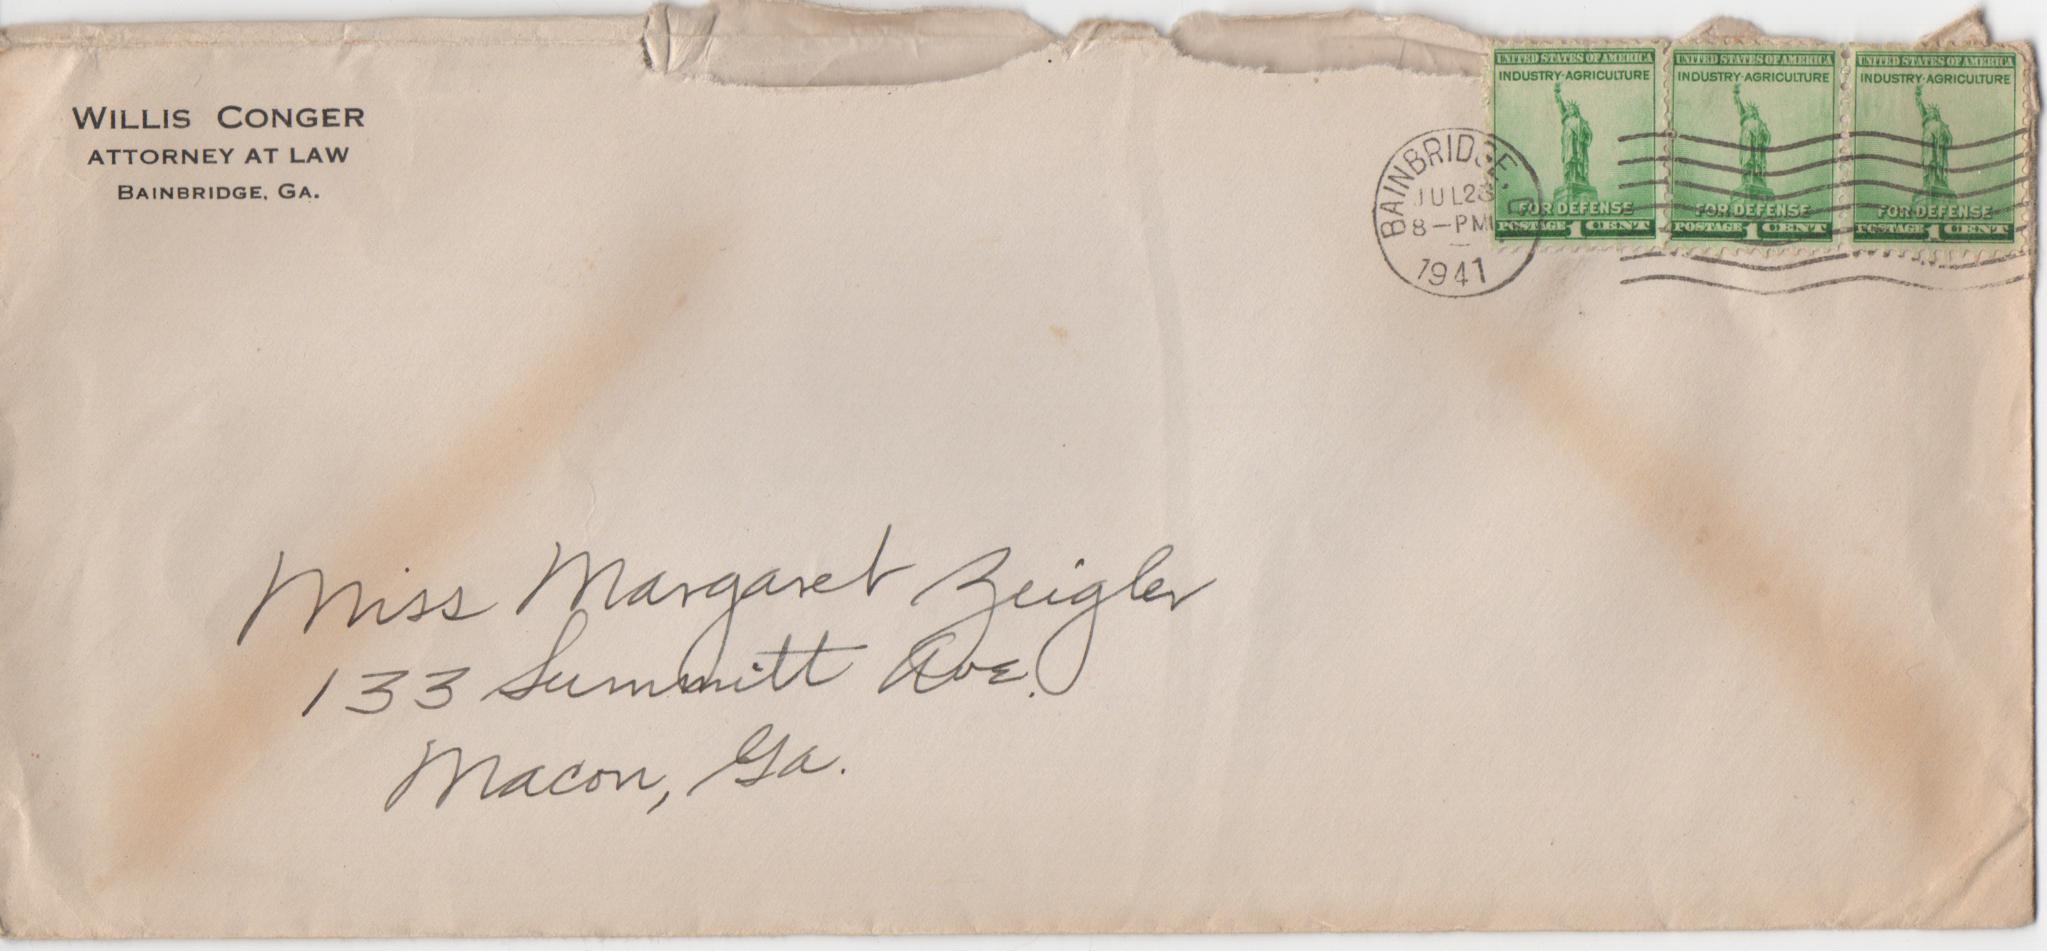 WILLIS CONGER
ATTORNEY AT LAW
BAINBRIDGE, GA.
UNITED STATES OF AMERICA
INDUSTRY-AGRICULTURE
FOR DEFENSE
POSTAGE 1 CENT
UNITED STATES OF AMERICA
INDUSTRY-AGRICULTURE
FOR DEFENSE
POSTAGE 1 CENT
UNITED STATES OF AMERICA
INDUSTRY-AGRICULTURE
FOR DEFENSE
POSTAGE 1 CENT
BAINBRIDGE,
JUL
8-PM
1941
Miss Margaret Zeigler
133 Summitt Ave.
Macon, Ga.